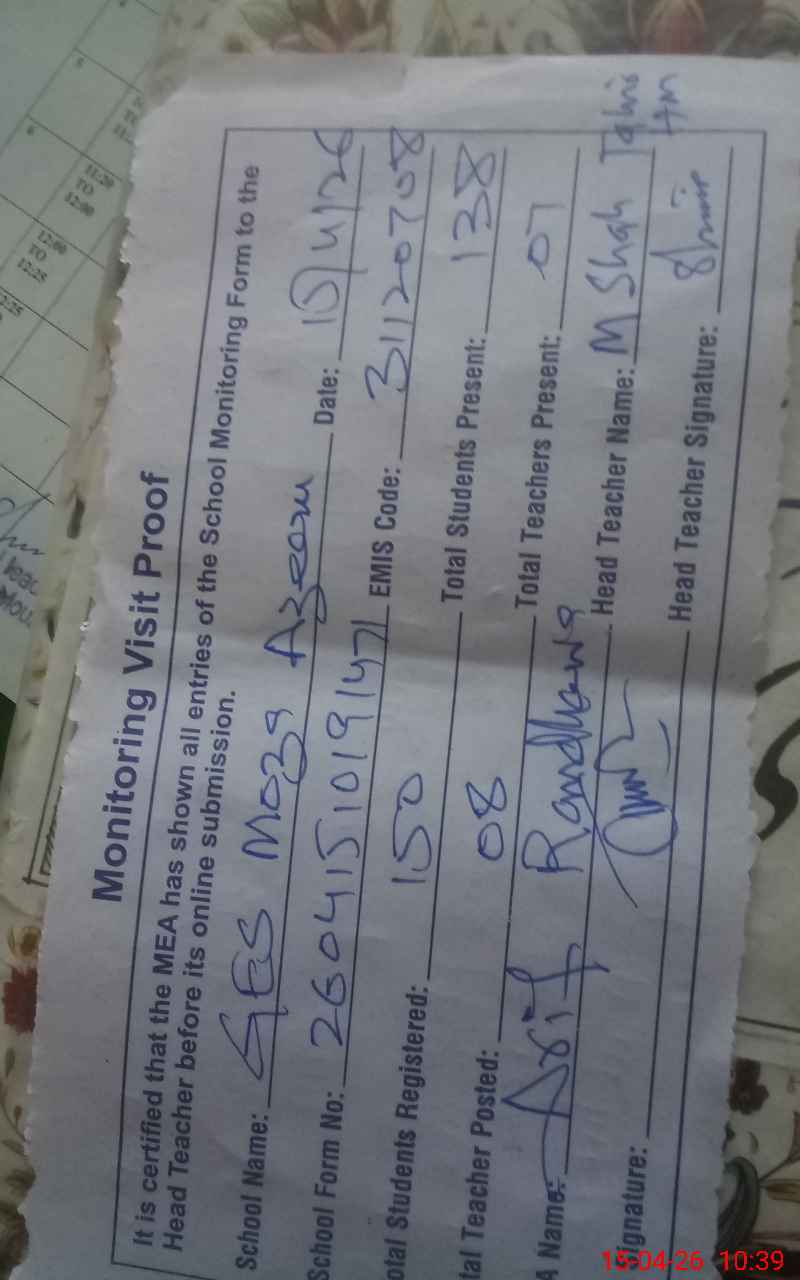 Monitoring Visit Proof
It is certified that the MEA has shown all entries of the School Monitoring Form to the
Head Teacher before its online submission.
School Name: GES Moza Azeem Date: 15/4/26
School Form No: 26041510191471 EMIS Code: 31120708
otal Students Registered: 150 Total Students Present: 138
tal Teacher Posted: 08 Total Teachers Present: 07
A Name: Asif Randhawa Head Teacher Name: M Shah
ignature: Head Teacher Signature:
11:20
TO
12:00
12:00
TO
12:25
15-04-26 10:39